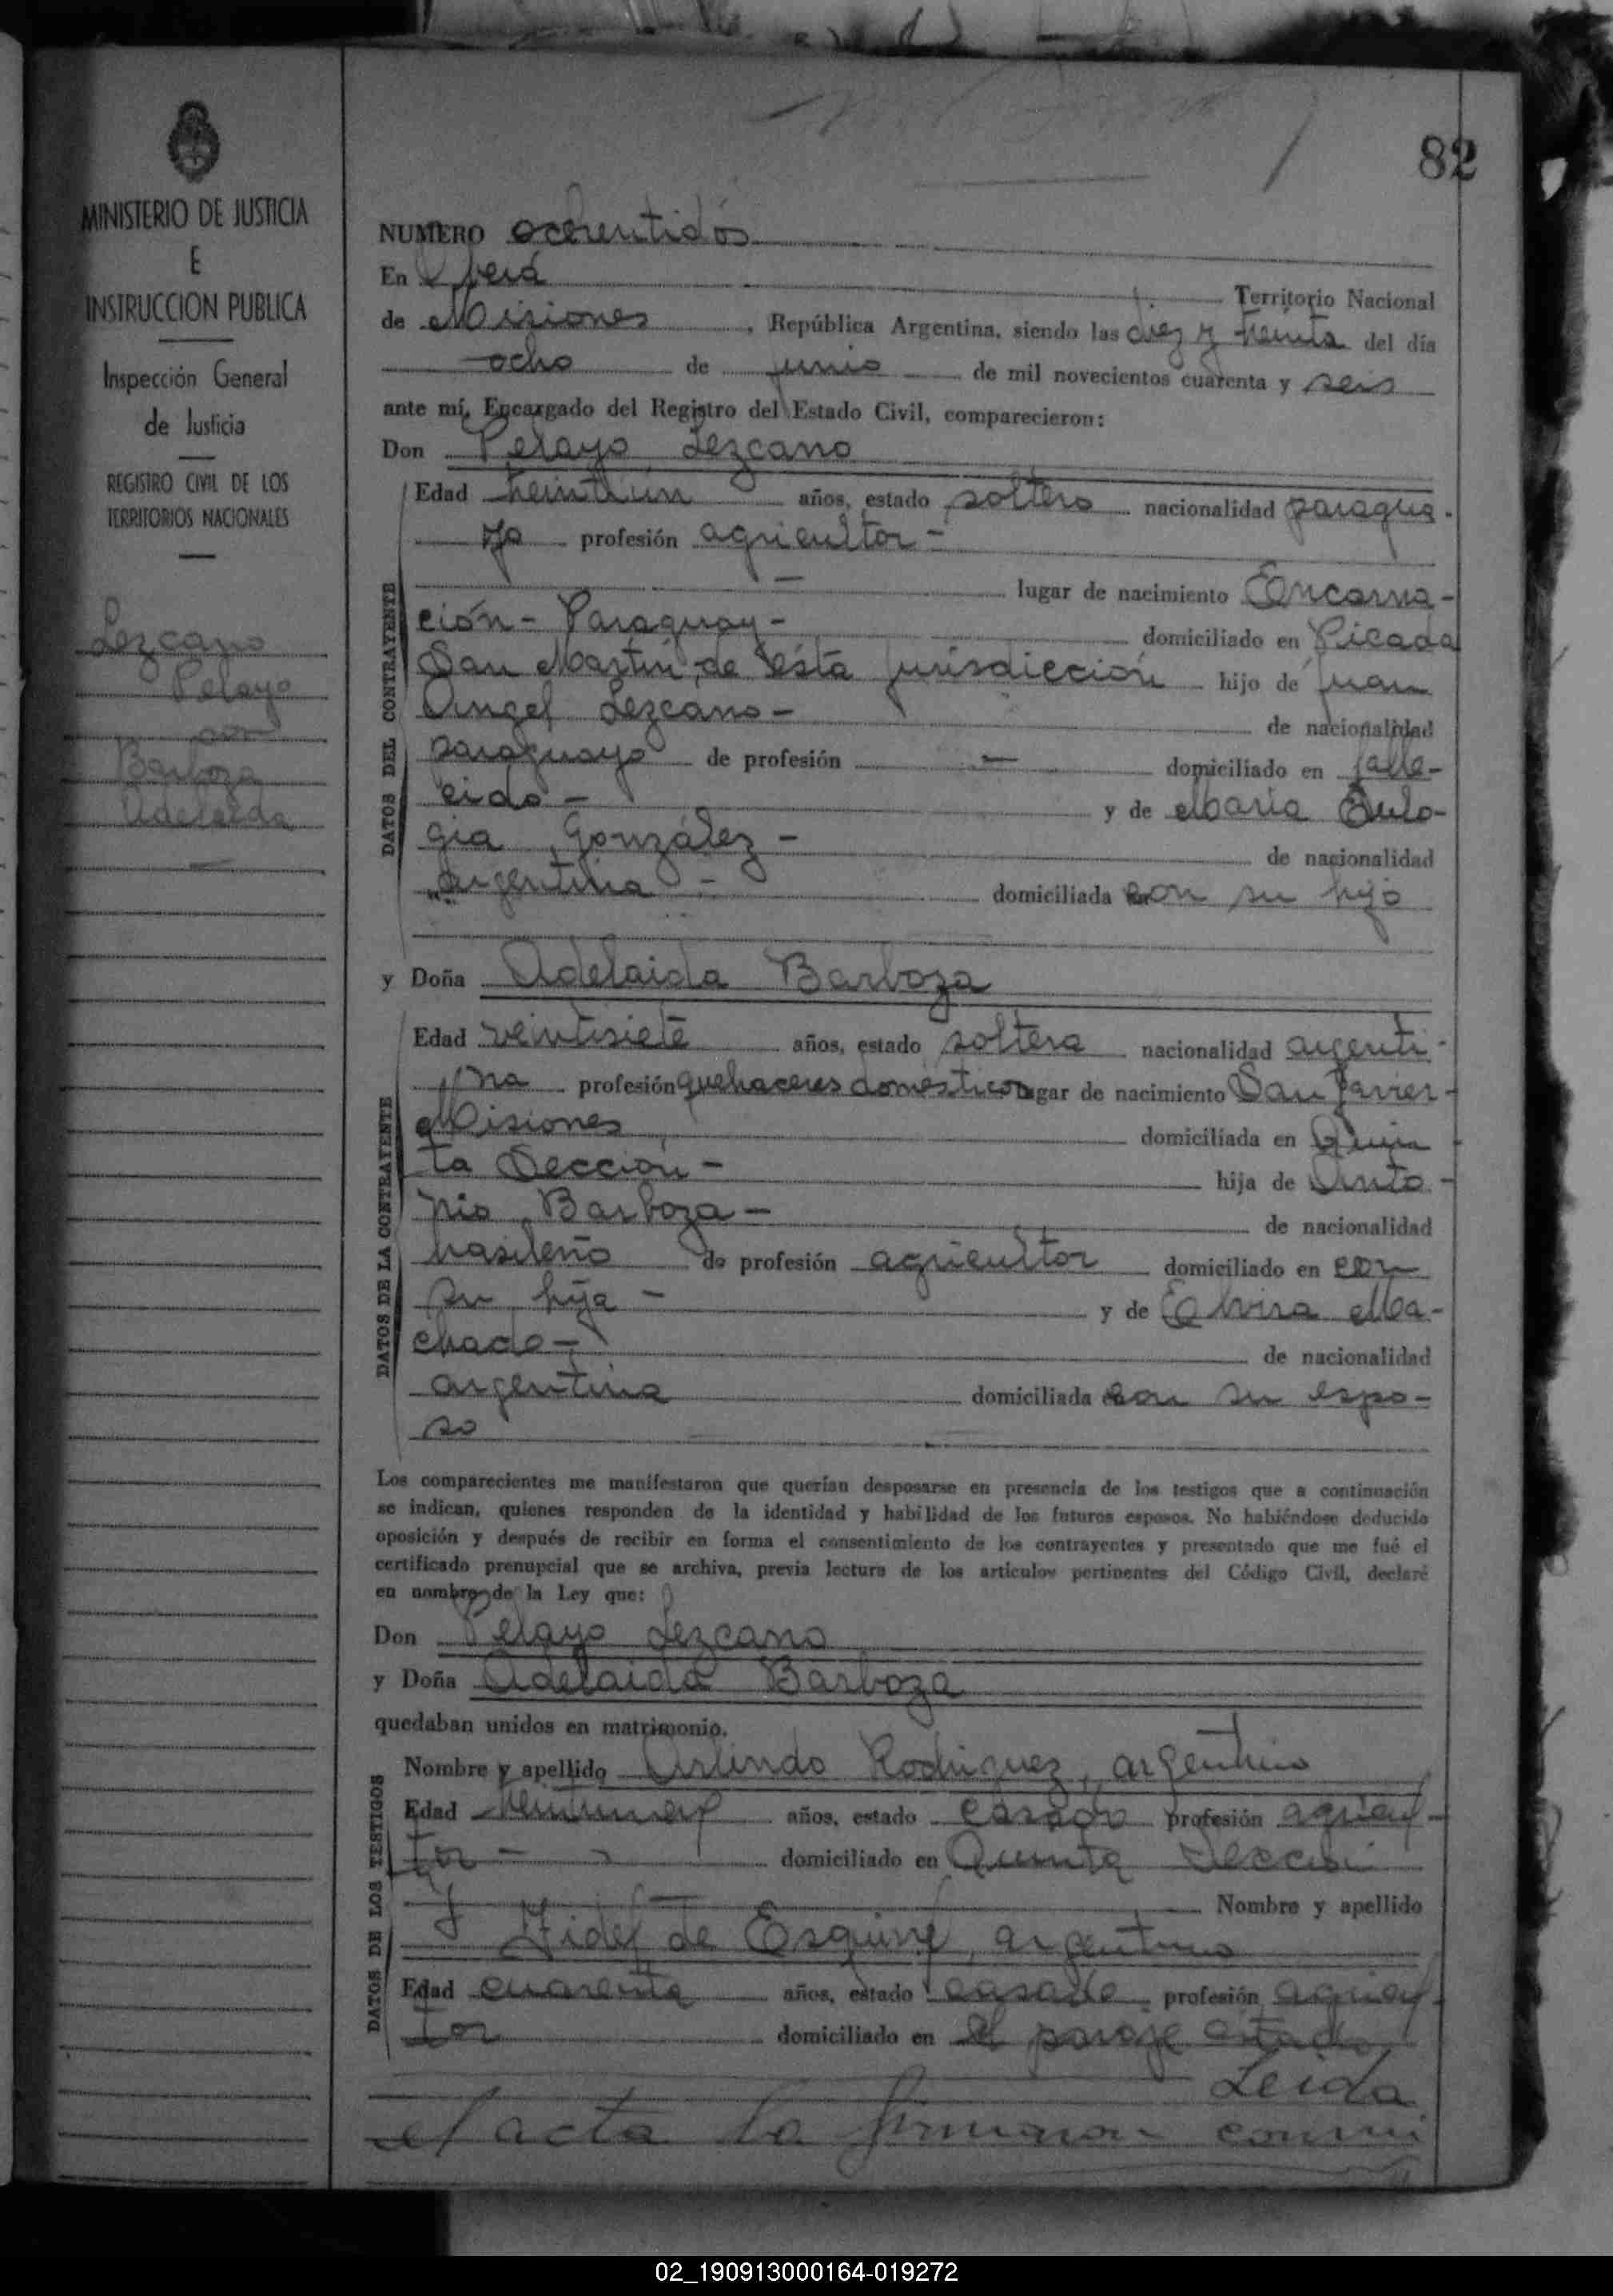 82
MINISTERIO DE JUSTICIA
E
INSTRUCCION PUBLICA
Inspección General
de Justicia
REGISTRO CIVIL DE LOS
TERRITORIOS NACIONALES
Lezcano
Pelayo
con
Barboza
Adelaida
NUMERO ochentidós
En Oberá
Territorio Nacional
de Misiones, República Argentina, siendo las diez y treinta del día
ocho de junio de mil novecientos cuarenta y seis
ante mí, Encargado del Registro del Estado Civil, comparecieron:
Don Pelayo Lezcano
DATOS DEL CONTRAYENTE
Edad treintiun años, estado soltero nacionalidad paragua-
yo profesión agricultor -
lugar de nacimiento Encarna-
ción - Paraguay - domiciliado en Picada
San Martín, de ésta jurisdicción hijo de Juan
Angel Lezcano - de nacionalidad
paraguayo de profesión — domiciliado en falle-
cido - y de María Eulo-
gia González - de nacionalidad
argentina - domiciliada con su hijo
y Doña Adelaida Barboza
DATOS DE LA CONTRAYENTE
Edad veintisiete años, estado soltera nacionalidad argenti-
na profesión quehaceres domésticos lugar de nacimiento San Javier -
Misiones domiciliada en Quin-
ta Sección - hija de Anto-
nio Barboza - de nacionalidad
brasileño de profesión agricultor domiciliado en con
su hija - y de Elvira Ma-
chado - de nacionalidad
argentina domiciliada con su espo-
so
Los comparecientes me manifestaron que querían desposarse en presencia de los testigos que a continuación
se indican, quienes responden de la identidad y habilidad de los futuros esposos. No habiéndose deducido
oposición y después de recibir en forma el consentimiento de los contrayentes y presentado que me fué el
certificado prenupcial que se archiva, previa lectura de los artículos pertinentes del Código Civil, declaré
en nombre de la Ley que:
Don Pelayo Lezcano
y Doña Adelaida Barboza
quedaban unidos en matrimonio.
DATOS DE LOS TESTIGOS
Nombre y apellido Arlindo Rodriguez, argentino
Edad años, estado casado profesión agricul-
tor - domiciliado en Quinta Sección
Nombre y apellido
y Fidel de Esquivel, argentino
Edad cuarenta años, estado casado profesión agricul-
tor domiciliado en el paraje citado
Leida
el acta la firmaron conmi
02_190913000164-019272